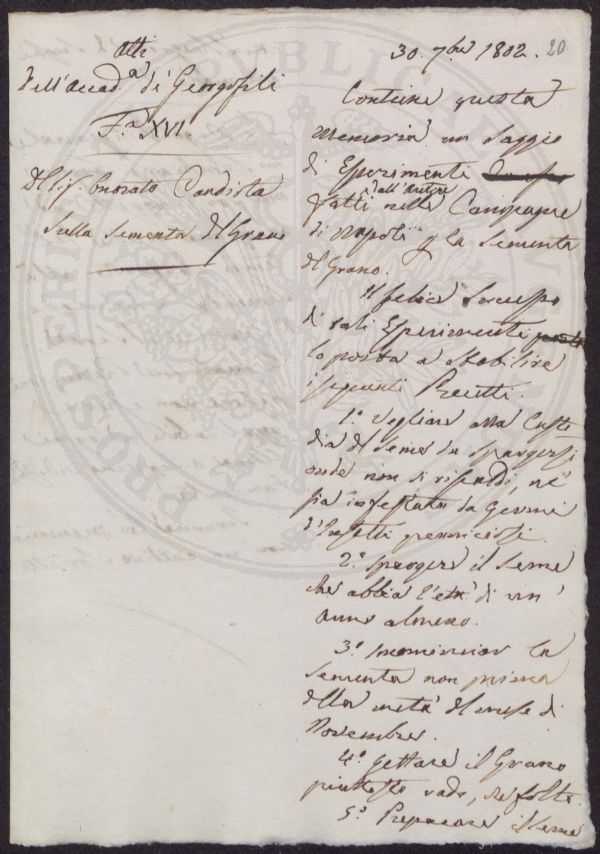 Atti
Dell'Accad.a de' Georgofili
F.a XVI
Del Sig. Onorato Candiota
Sulla Sementa del Grano
30. 7bre 1802. 20
Contiene questa
Memoria un Saggio
di Esperimenti
fatti dall'Autore nelle Campagne
di Napoli p la Sementa
del Grano.
Il felice Successo
di tali Esperimenti
lo porta a stabilire
i seguenti Precetti.
1.o Vegliare alla Custo
dia del seme da spargersi
onde non si riscaldi, nè
sia infestato da Germi
d'Insetti perniciosi.
2.o Spargere il seme
che abbia l'età di un'
anno almeno.
3.o Incominciar la
Sementa non prima
della metà del mese di
Novembre.
4.o gettare il Grano
piuttosto rado, che folto.
5.o Preparare il seme
PROSPERI
PUBLICAE